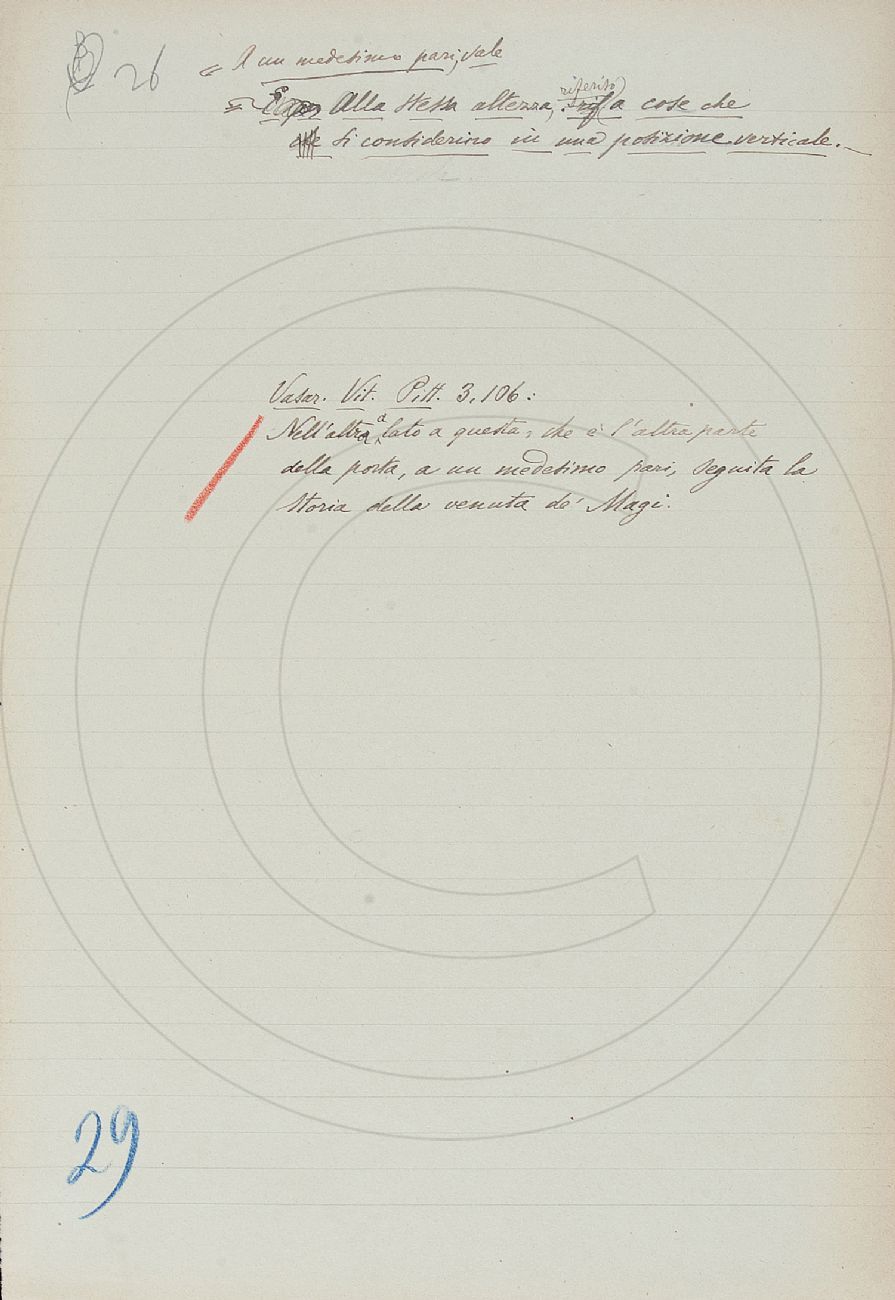 26
A un medesimo pari, vale
Alla stessa altezza, riferito a cose che
si considerino in una posizione verticale.
Vasar. Vit. Pitt. 3. 106:
Nell'altro lato a questa, che è l'altra parte
della porta, a un medesimo pari, seguita la
storia della venuta de' Magi.
29